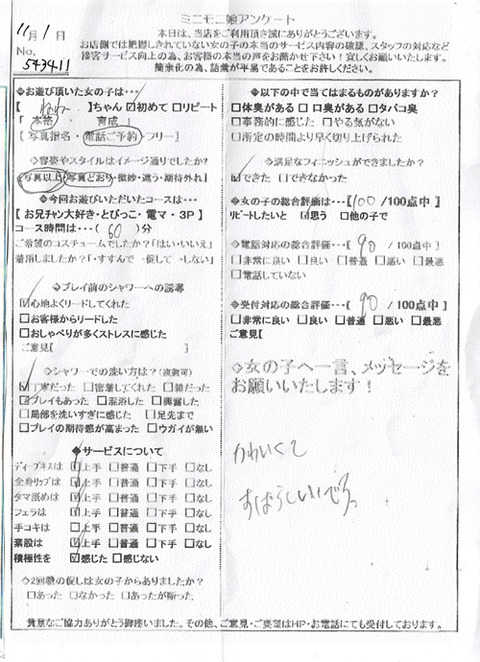 ミニモニ娘アンケート
11月1日
No.
543411
本日は、当店をご利用頂き誠にありがとうございます。
お店側では把握しきれていない女の子の本当のサービス内容の確認、スタッフの対応など
接客サービス向上の為、お客様の本当の声をお聞かせ下さい!宜しくお願いいたします。
簡素化の為、語彙が平易であることをお許しください。
◇お遊び頂いた女の子は…
【 】ちゃん ☑初めて □リピート
「 本格 ・ 育成 」
( 写真指名・電話ご予約・フリー)
◇容姿やスタイルはイメージ通りでしたか?
(写真以上・写真どおり・微妙・違う・期待外れ)
◇今回お遊びいただいたコースは…
【 お兄チャン大好き・とびっこ・電マ・3P】
コース時間は…( 60 )分
ご希望のコスチュームでしたか?「はい・いいえ」
着用しましたか?「・すすんで ・促して ・しない」
◇プレイ前のシャワーへの誘導
☑心地よくリードしてくれた
□お客様からリードした
□おしゃべりが多くストレスに感じた
ご意見[ ]
◇シャワーでの洗い方は?(複数可)
☑丁寧だった □密着してくれた □雑だった
☑プレイもあった □混浴した □興奮した
□局部を洗いすぎに感じた □足先まで
□プレイの期待感が高まった □ウガイが無い
◇サービスについて
ディープキスは ☑上手 □普通 □下手 □なし
全身リップは ☑上手 □普通 □下手 □なし
タマ舐めは ☑上手 □普通 □下手 □なし
フェラは ☑上手 □普通 □下手 □なし
手コキは □上手 □普通 □下手 □なし
素股は ☑上手 □普通 □下手 □なし
積極性を ☑感じた □感じない
◇2回戦の促しは女の子からありましたか?
□あった □なかった □あったが断った
◇以下の中で当てはまるものがありますか?
□体臭がある □口臭がある □タバコ臭
□事務的に感じた □やる気がない
□所定の時間より早く切り上げられた
◇満足なフィニッシュができましたか?
☑できた □できなかった
◇女の子の総合評価は…[100/100点中]
リピートしたいと ☑思う □他の子で
◇電話対応の総合評価…[ 90 /100点中]
□非常に良い □良い □普通 □悪い □最悪
□電話していない
◇受付対応の総合評価…[ 90 /100点中]
□非常に良い □良い □普通 □悪い □最悪
ご意見[
◇女の子へ一言、メッセージを
お願いいたします!
かわいくて
すばらしいいです。
貴重なご協力ありがとう御座いました。その他、ご意見・ご要望はHP・お電話にても受付しております。